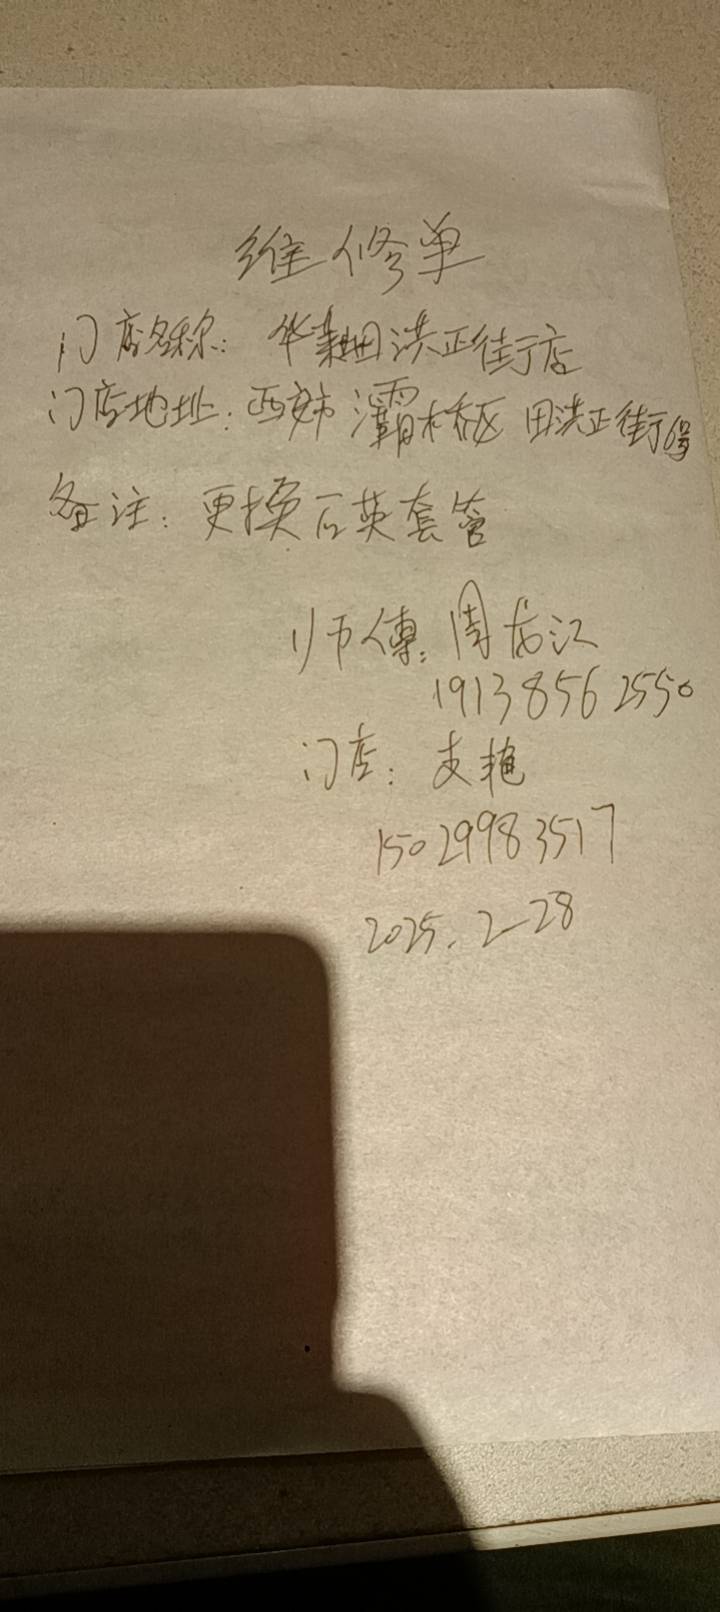 维修单
门店名称：华莱田洪正街店
门店地址：西安市灞桥区田洪正街号
备注：更换石英套管
师傅：周龙江
19138562550
门店：支艳
15029983517
2025.2-28